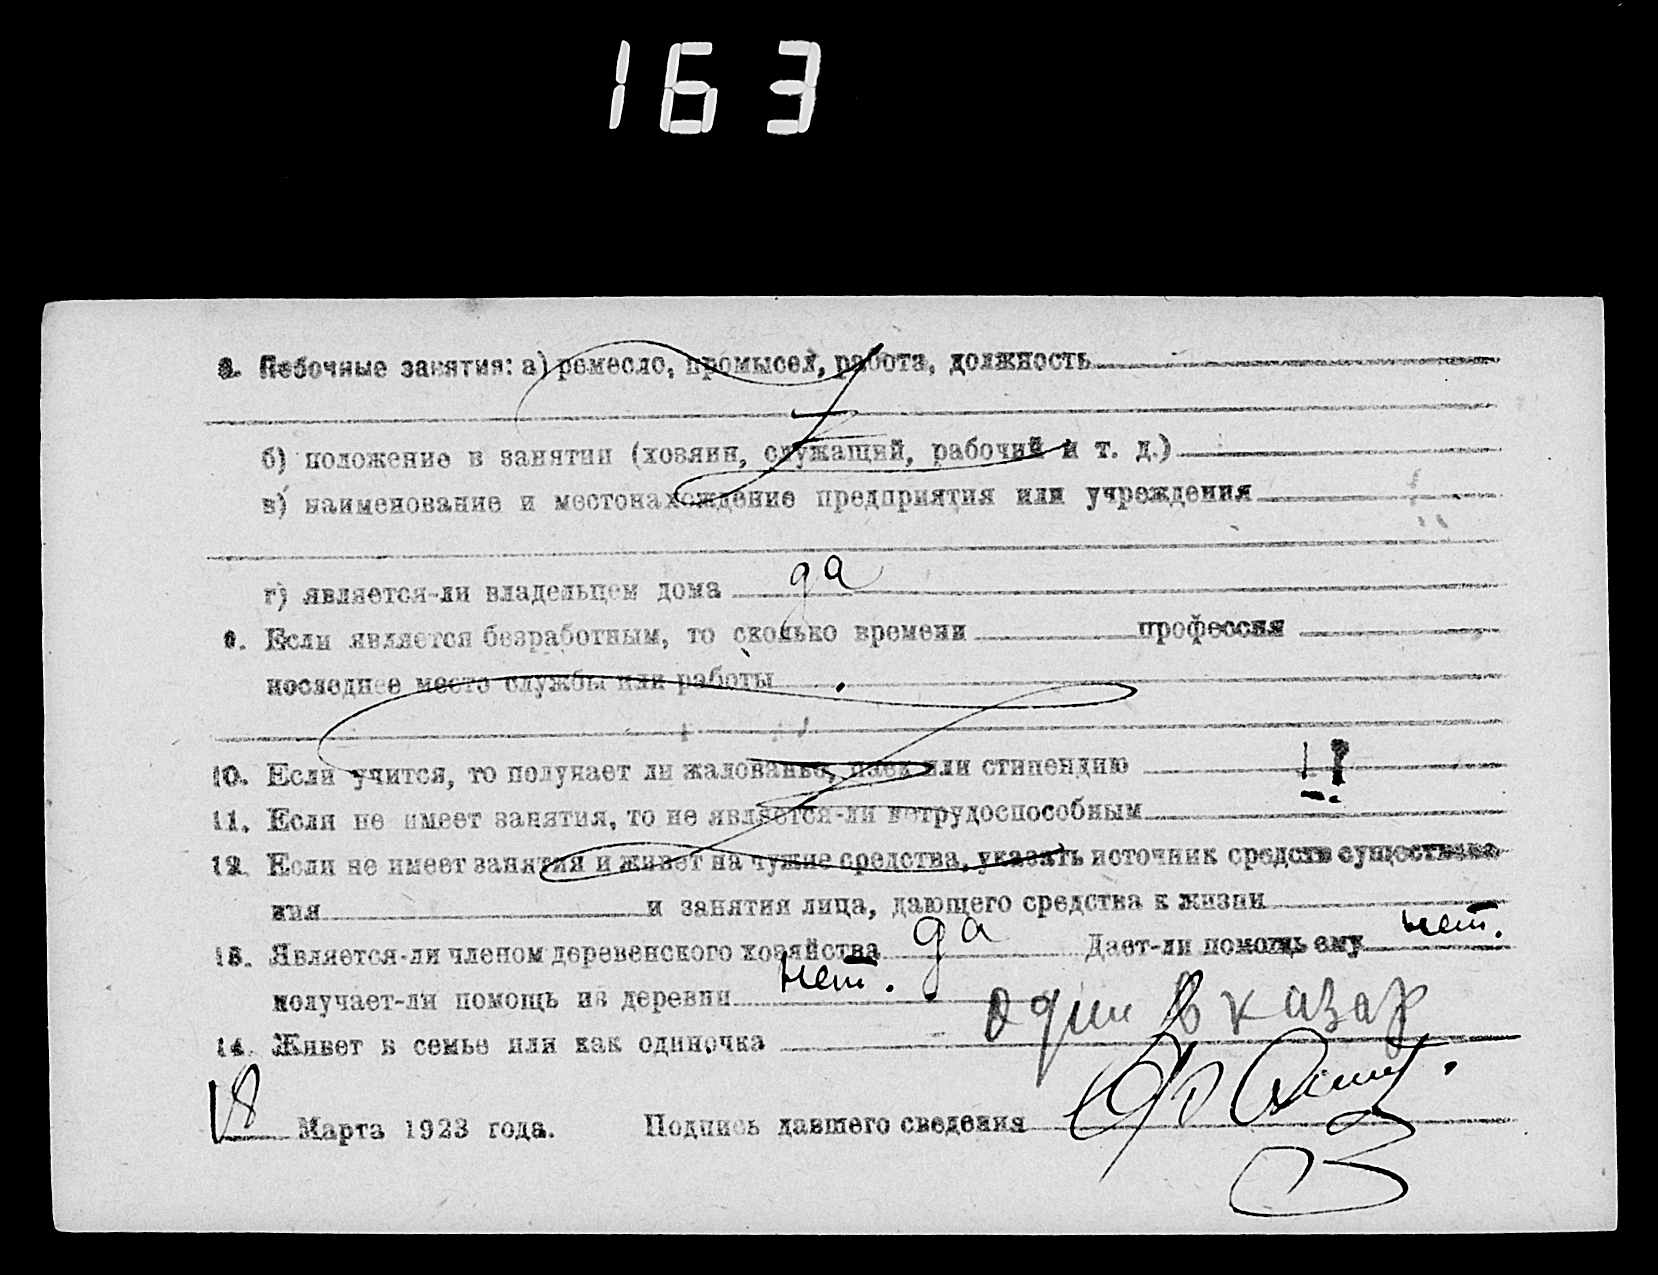 163
8. Побочные занятия: а) ремесло, промысел, работа, должность
б) положение в занятии (хозяин, служащий, рабочий и т. д.)
в) наименование и местонахождение предприятия или учреждения
г) является-ли владельцем дома да
9. Если является безработным, то сколько времени профессия
последнее место службы или работы
10. Если учится, то получает ли жалованье, паек или стипендию
11. Если не имеет занятия, то не является-ли нетрудоспособным
12. Если не имеет занятия и живет на чужие средства, указать источник средств существова-
ния и занятия лица, дающего средства к жизни
13. Является-ли членом деревенского хозяйства да Дает-ли помощь ему нет.
получает-ли помощь из деревни нет.
14. Живет в семье или как одиночка один в казар
18 Марта 1923 года. Подпись давшего сведения